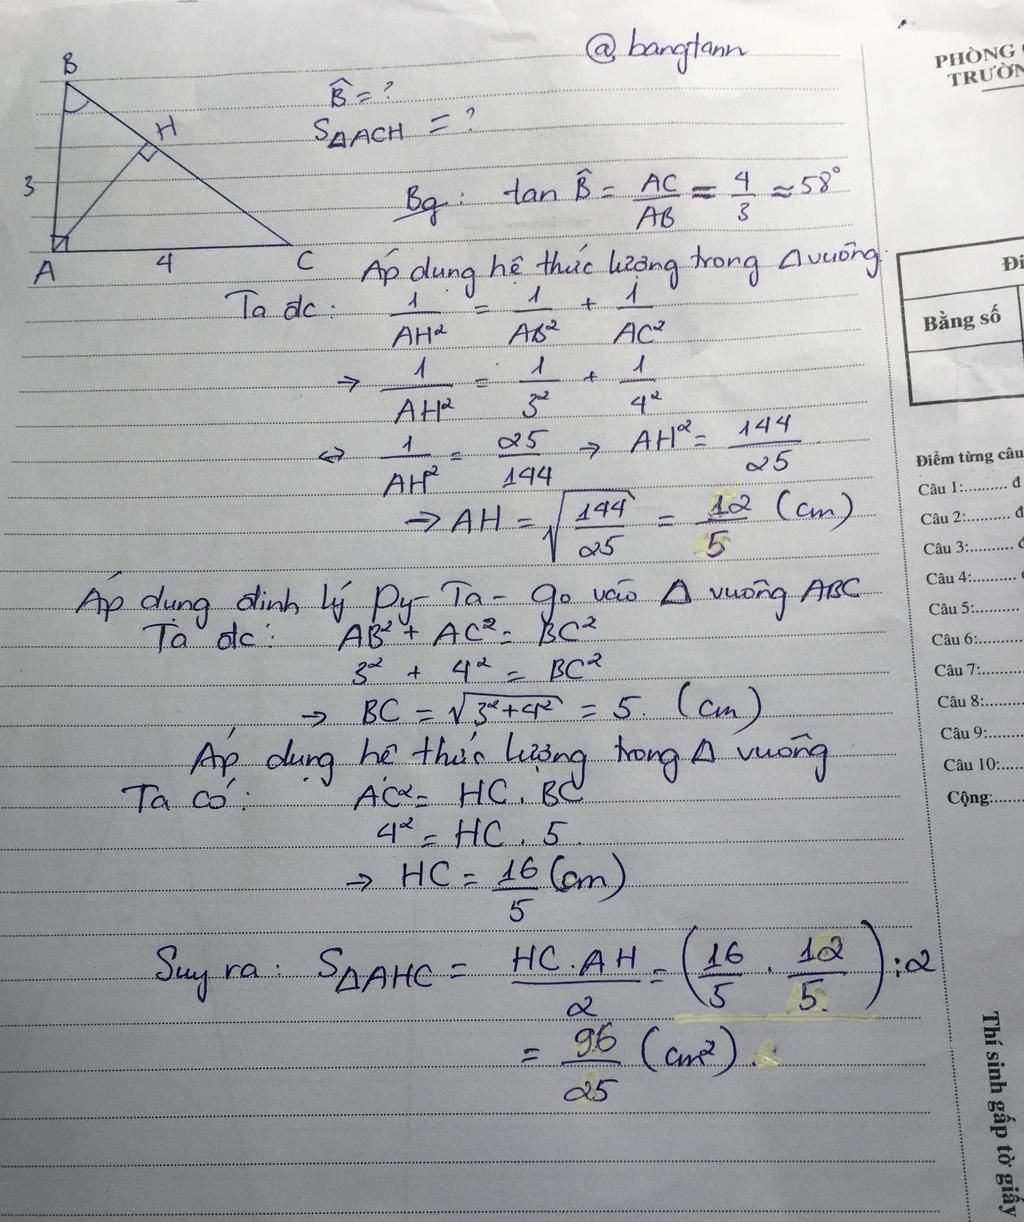 @bangtann
PHÒNG
TRƯỜN
B
H
3
A
4
C
B̂ = ?
SΔACH = ?
Bg: tan B̂ = AC/AB = 4/3 ≈ 58°
Áp dụng hệ thức lượng trong Δ vuông
Ta dc: 1/AH² = 1/AB² + 1/AC²
→ 1/AH² = 1/3² + 1/4²
⇔ 1/AH² = 25/144 → AH² = 144/25
→ AH = √(144/25) = 12/5 (cm)
Áp dụng định lý Py-Ta-go vào Δ vuông ABC
Ta dc: AB² + AC² = BC²
3² + 4² = BC²
→ BC = √(3²+4²) = 5. (cm)
Áp dụng hệ thức lượng trong Δ vuông
Ta có: AC² = HC . BC
4² = HC . 5
→ HC = 16/5 (cm)
Suy ra: SΔAHC = HC.AH/2 = (16/5 . 12/5) : 2
= 96/25 (cm²).
Đi
Bằng số
Điểm từng câu
Câu 1:.......... đ
Câu 2:.......... đ
Câu 3:.......... đ
Câu 4:..........
Câu 5:..........
Câu 6:..........
Câu 7:..........
Câu 8:..........
Câu 9:..........
Câu 10:.....
Cộng:........
Thí sinh gấp tờ giấy